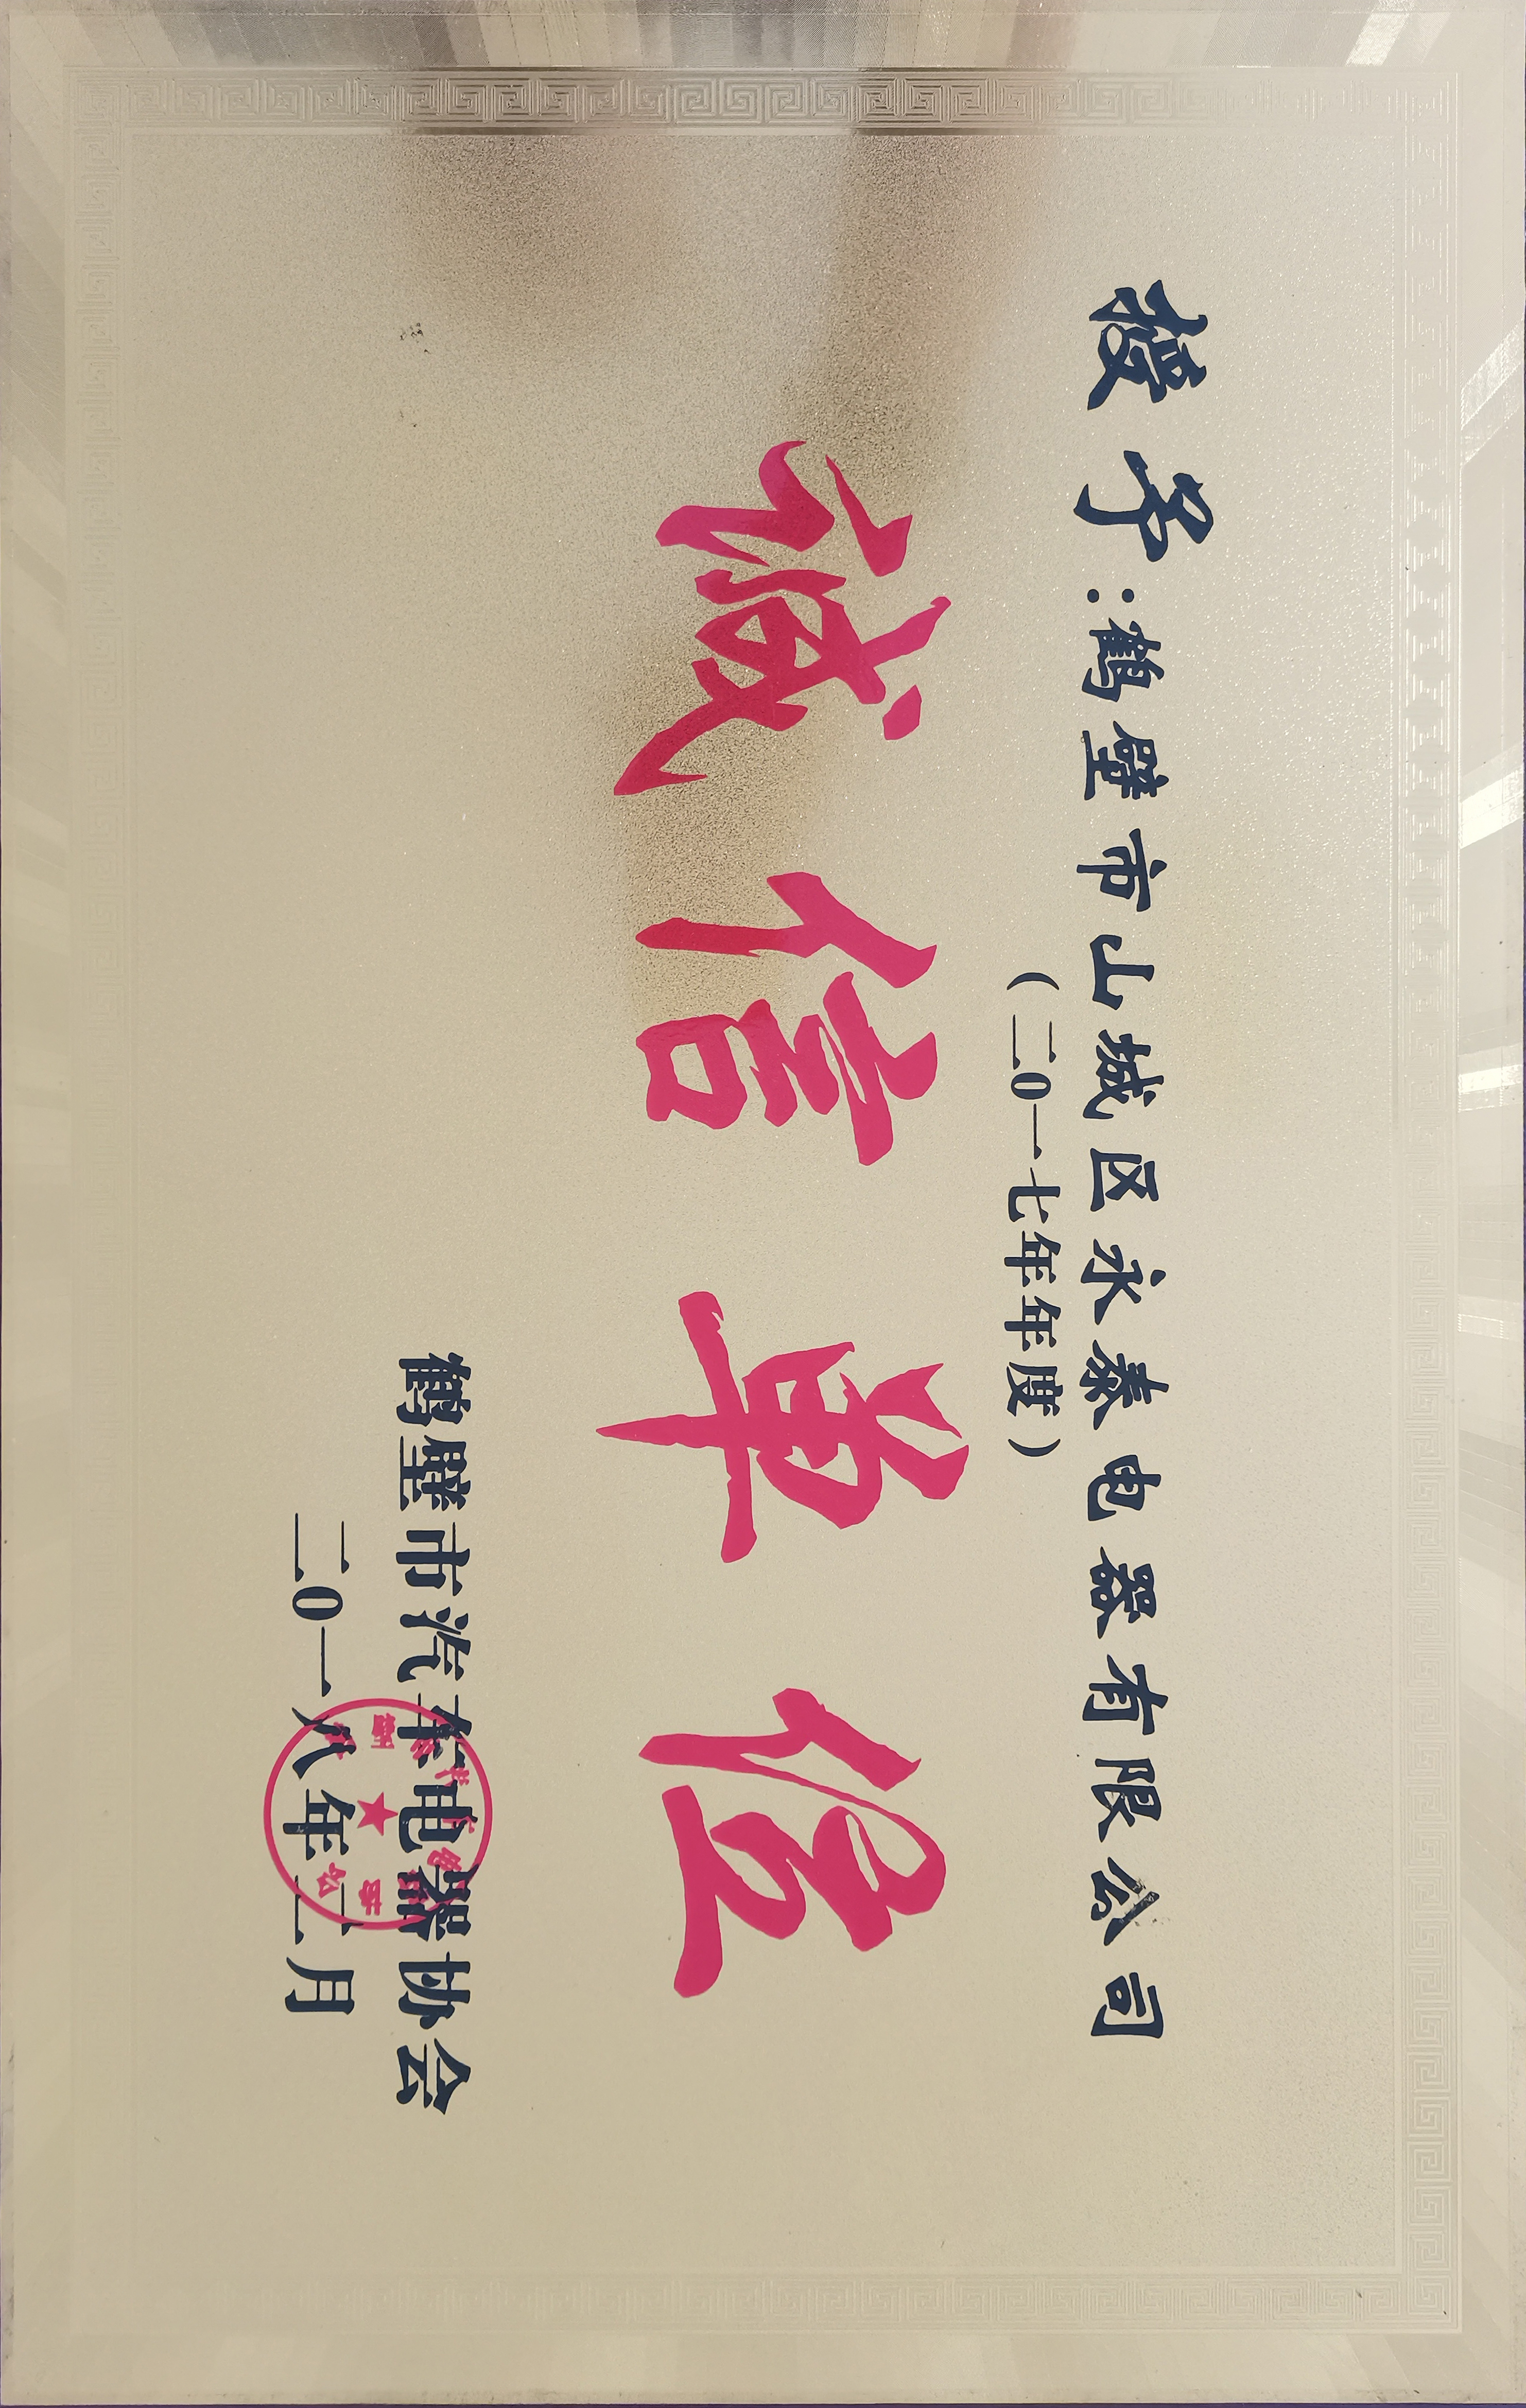 授予：鹤壁市山城区永泰电器有限公司
（二0一七年年度）
诚信单位
鹤壁市汽车电器协会
二0一八年二月